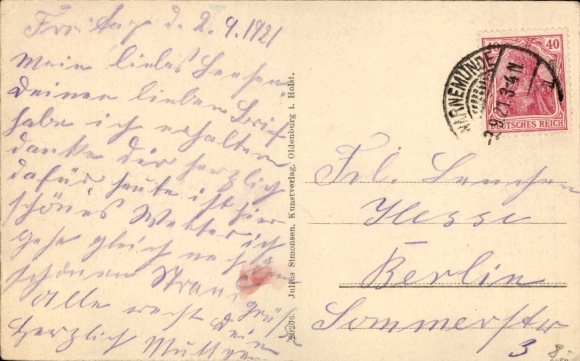 Freitag d. 2.9.1921
Mein liebes Lenchen
Deinen lieben Brief
habe ich erhalten
danke dir herzlich
dafür heute ist hier
schönes Wetter ich
gehe gleich nach
schönen Strand
Alle recht
grüße
Dein
herzlich Mutter
90296 Julius Simonsen, Kunstverlag, Oldenburg i. Holst.
WARNEMÜNDE
2.9.21.3-4N
40
DEUTSCHES REICH
Frl. Lenchen
Hesse
Berlin
Sommerstr
3